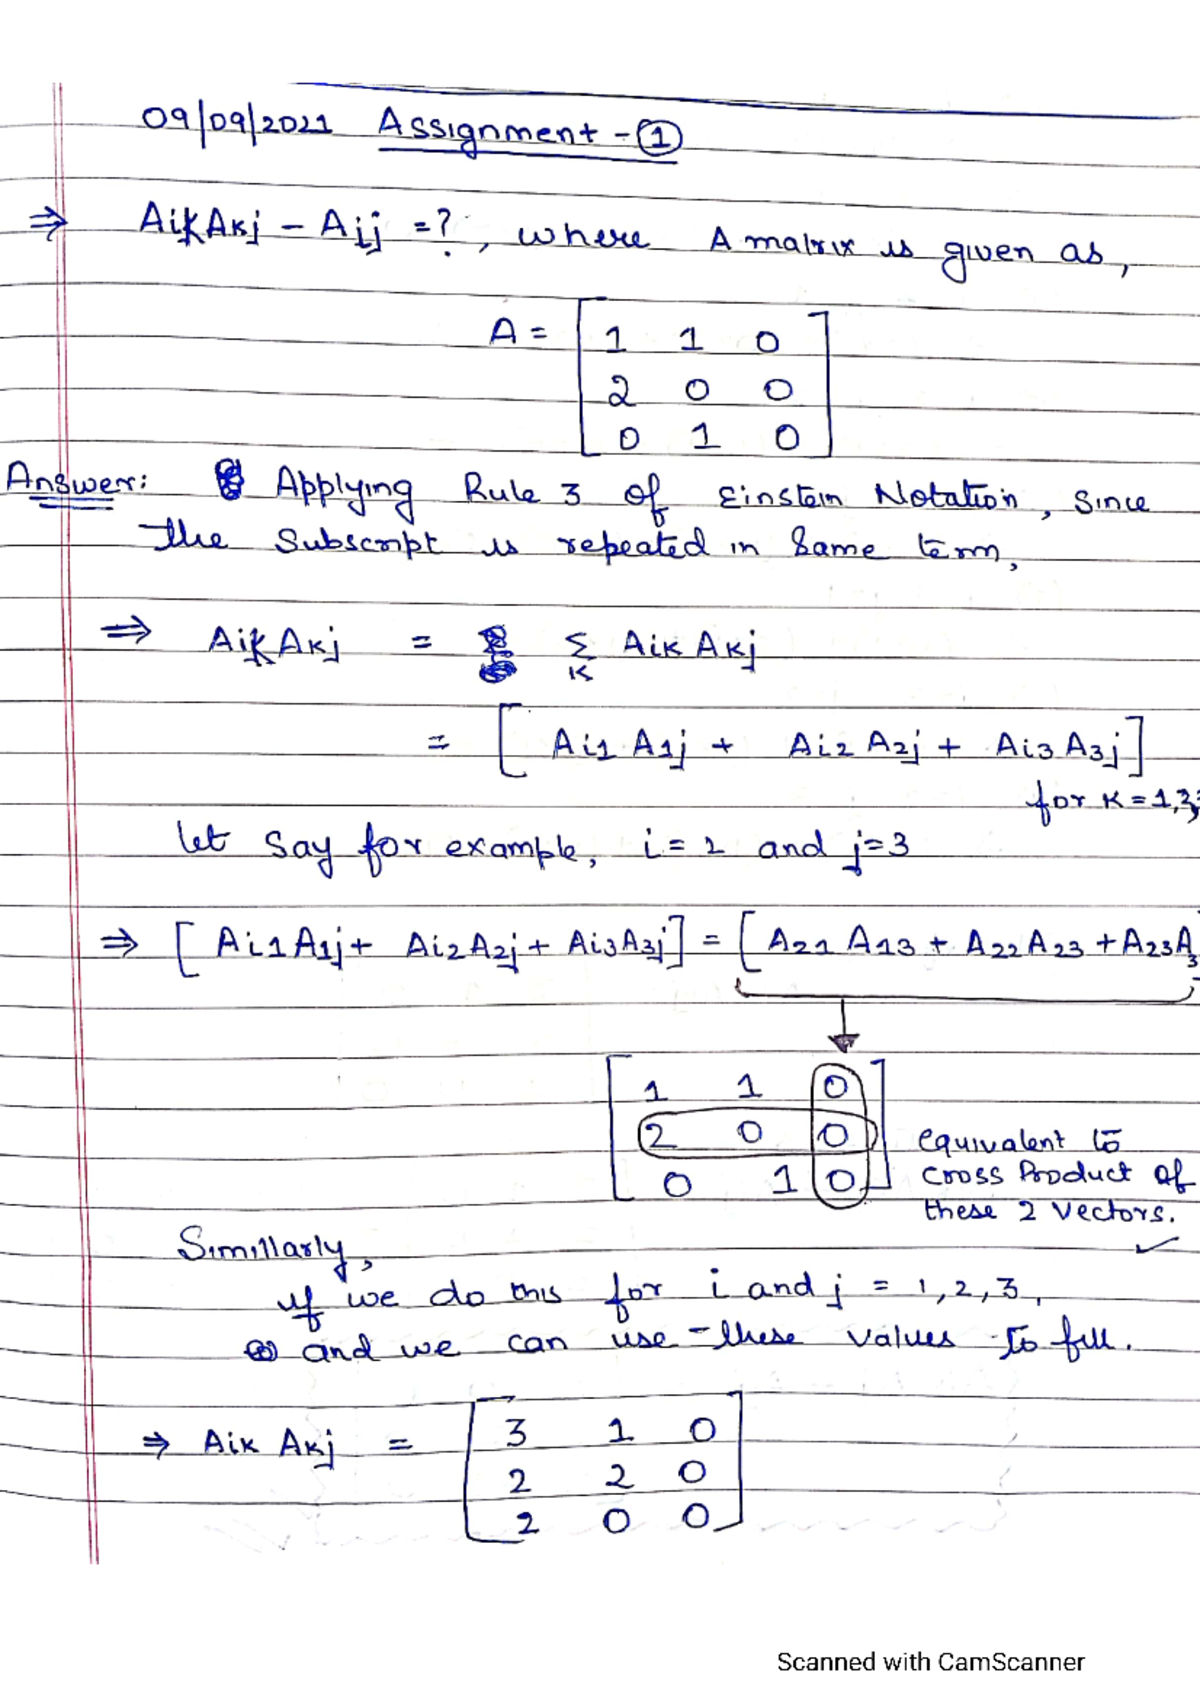 09/09/2021 Assignment - ①
⇒ AikAkj - Aij = ?, where A matrix is given as,
A = [ 1 1 0
2 0 0
0 1 0 ]
Answer: Applying Rule 3 of Einstein Notation, Since
the Subscript is repeated in Same term,
⇒ AikAkj = Σ Aik Akj
K
= [ Ai1 A1j + Ai2 A2j + Ai3 A3j ]
for K = 1,2,3
let say for example, i = 2 and j = 3
⇒ [ Ai1 A1j + Ai2 A2j + Ai3 A3j ] = [ A21 A13 + A22 A23 + A23 A3
[ 1 1 0
2 0 0 equivalent to
0 1 0 ] cross Product of
these 2 vectors.
Simillarly,
if we do this for i and j = 1, 2, 3,
and we can use these values to fill.
⇒ Aik Akj = [ 3 1 0
2 2 0
2 0 0 ]
Scanned with CamScanner